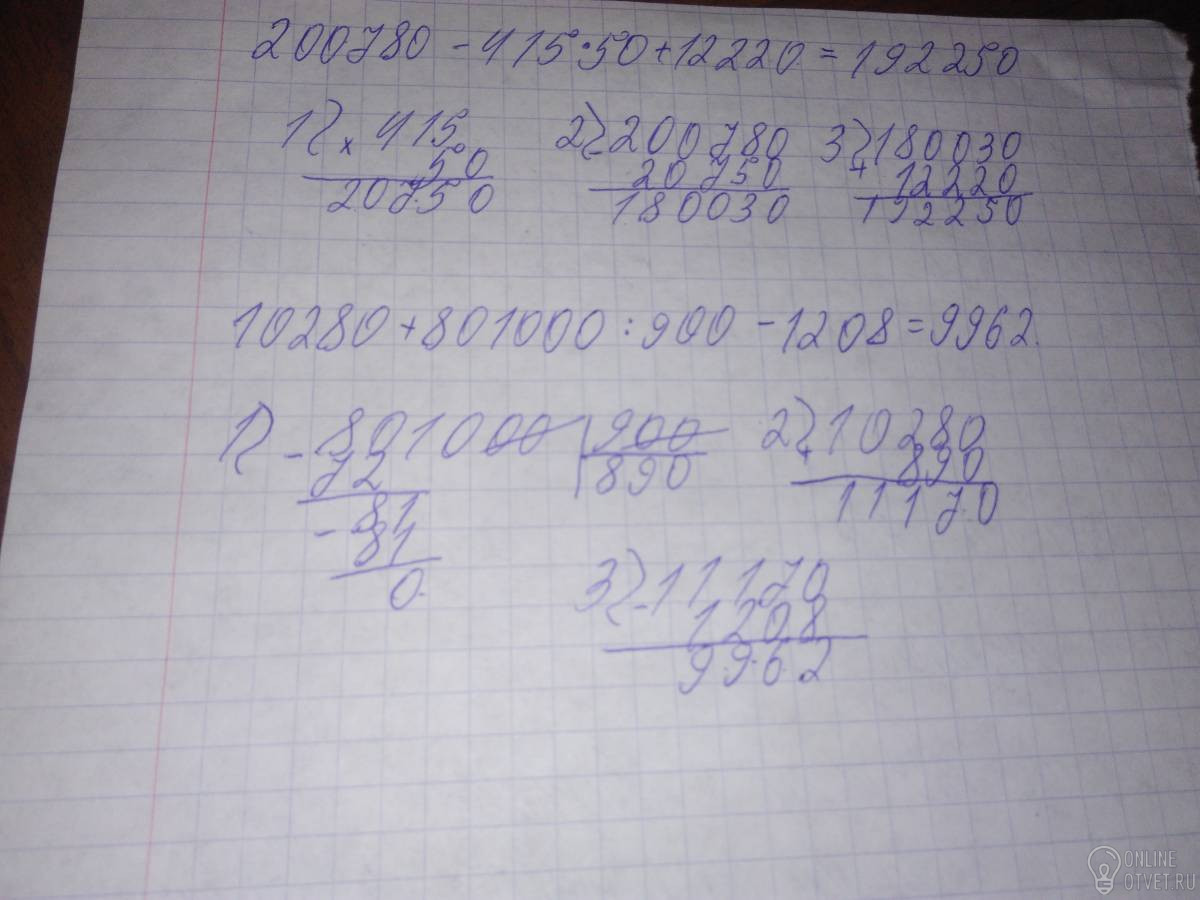 200780 - 415·50 + 12220 = 192250
1) × 415
50
20750
2) - 200780
20750
180030
3) + 180030
12220
192250
10280 + 801000 : 900 - 1208 = 9962.
1) - 801000 | 900
72
890
- 81
81
0.
2) + 10280
890
11170
3) - 11170
1208
9962
ONLINE
OTVET.RU